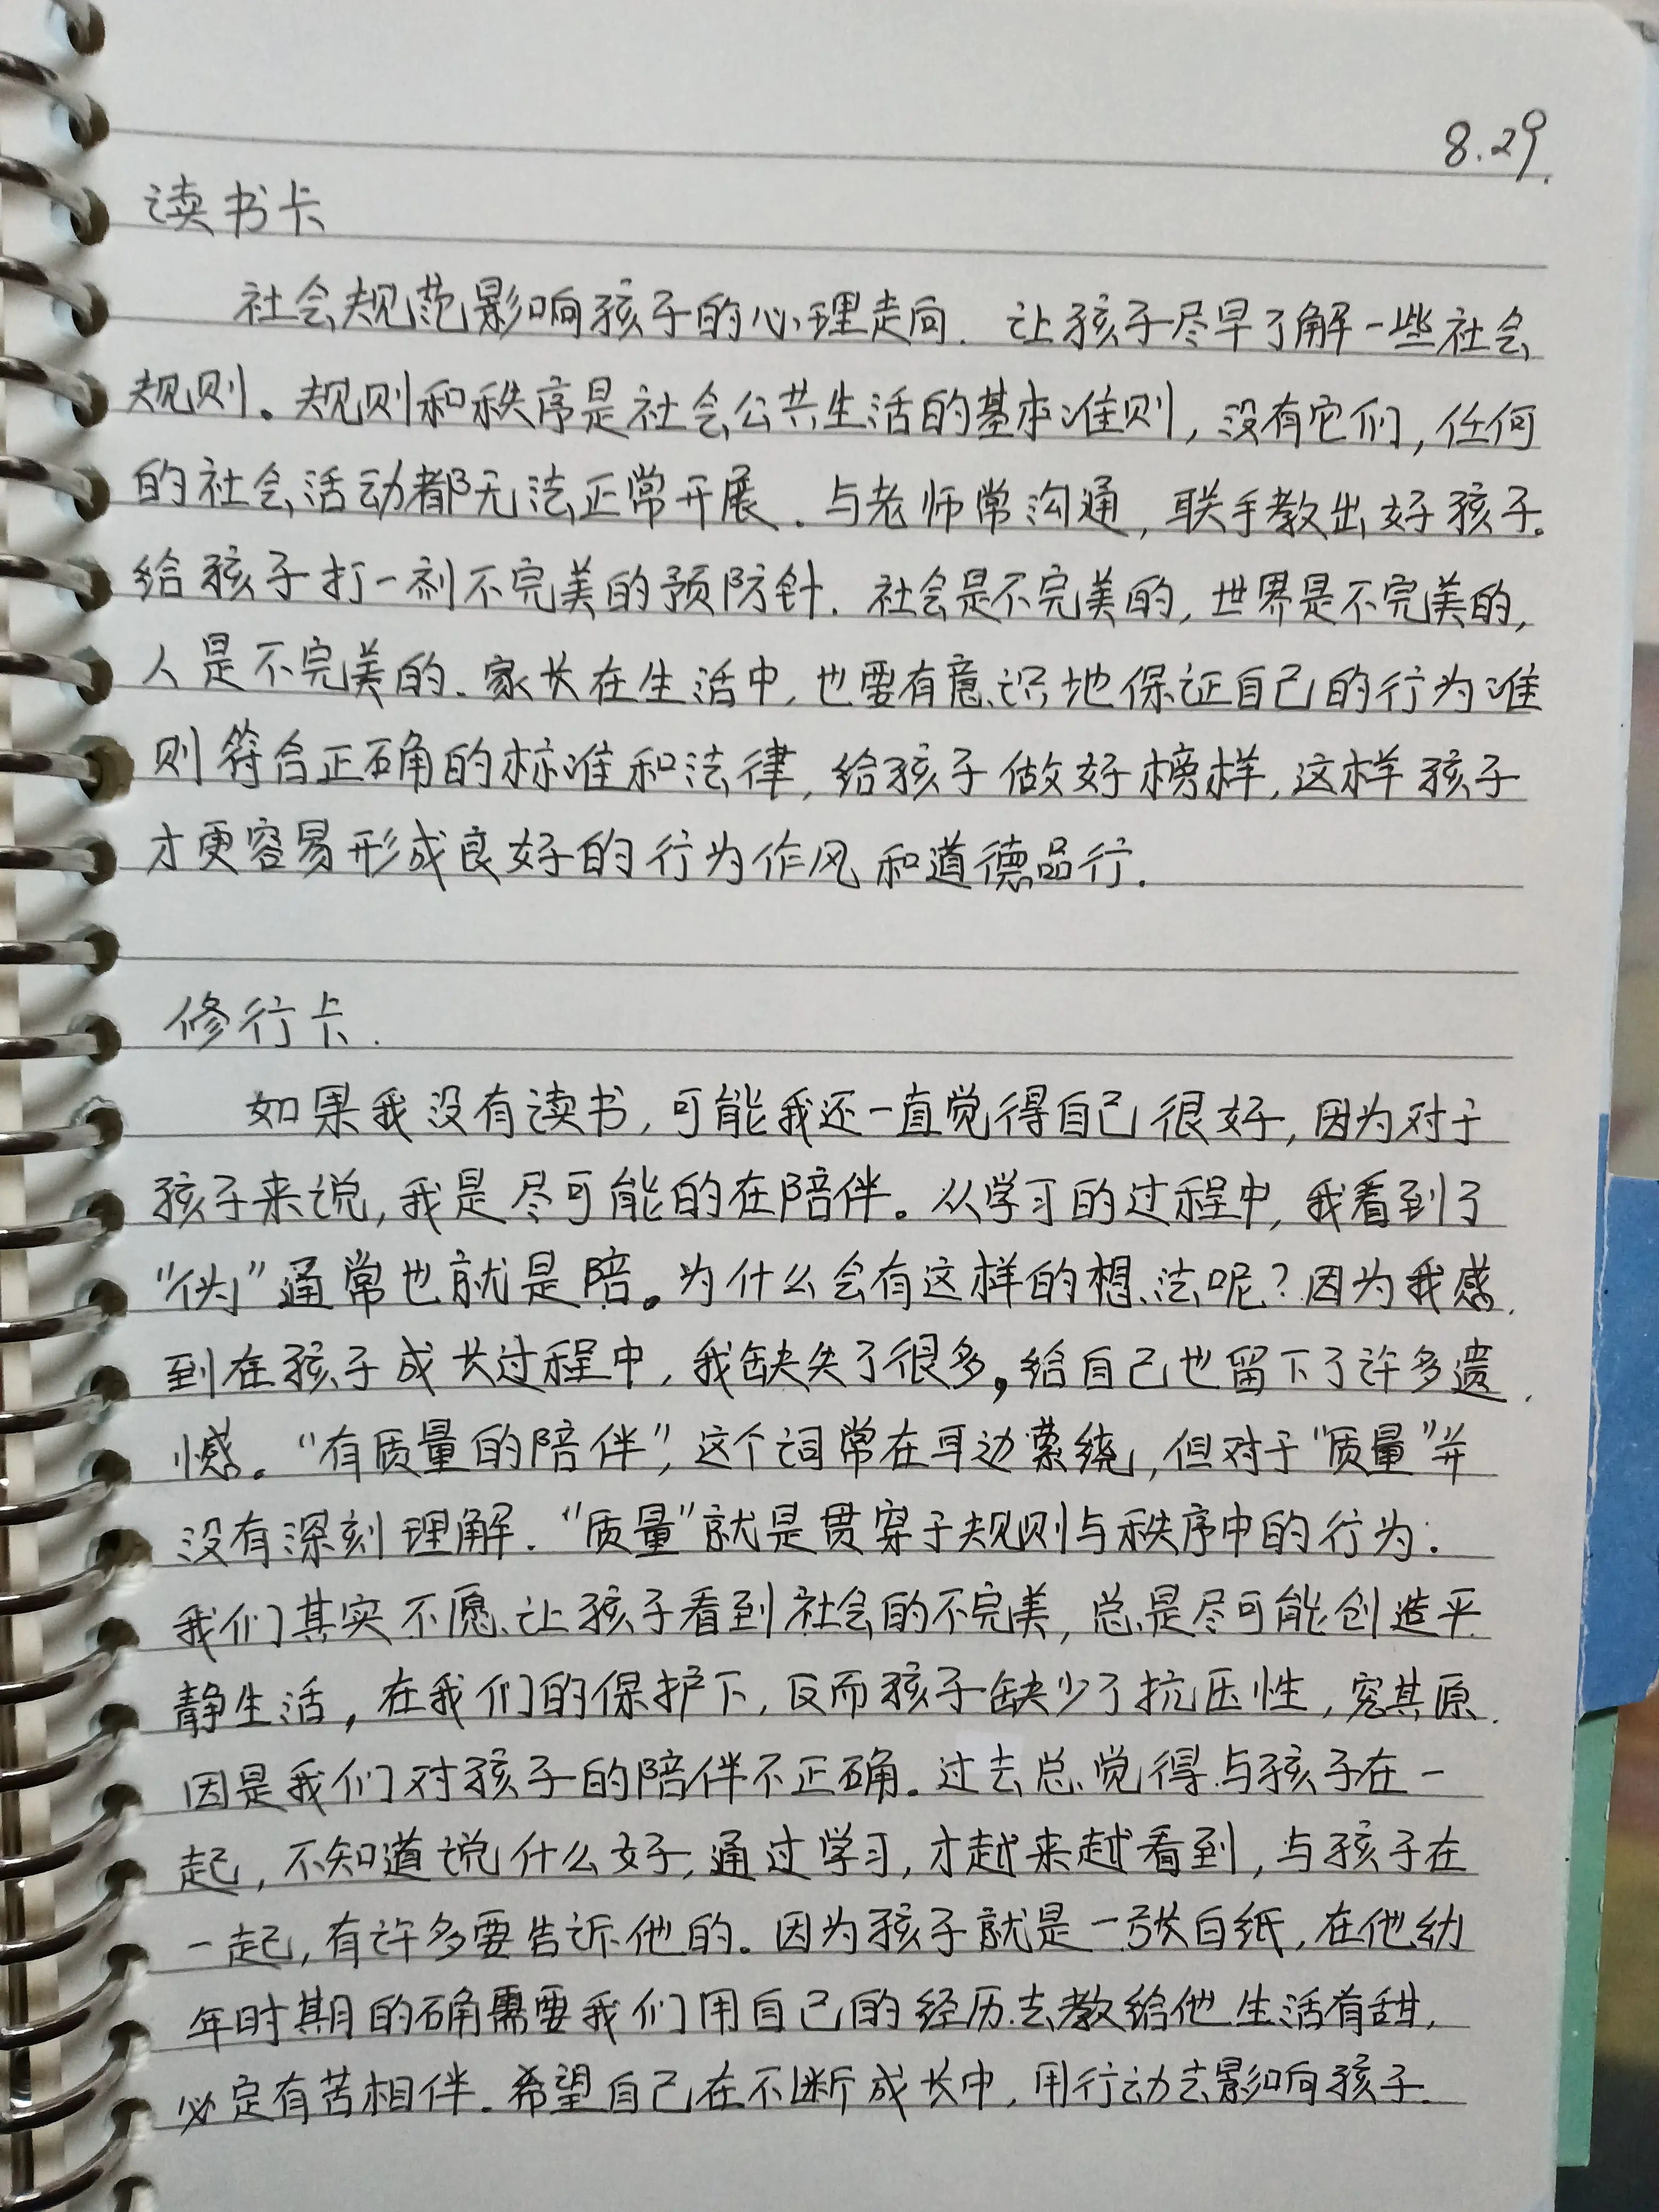 8.29.
读书卡
社会规范影响孩子的心理走向. 让孩子尽早了解一些社会
规则。规则和秩序是社会公共生活的基本准则, 没有它们, 任何
的社会活动都无法正常开展. 与老师常沟通, 联手教出好孩子.
给孩子打一剂不完美的预防针. 社会是不完美的, 世界是不完美的,
人是不完美的. 家长在生活中, 也要有意识地保证自己的行为准
则符合正确的标准和法律, 给孩子做好榜样, 这样孩子
才更容易形成良好的行为作风和道德品行.
修行卡.
如果我没有读书, 可能我还一直觉得自己很好, 因为对于
孩子来说, 我是尽可能的在陪伴。从学习的过程中, 我看到了
“伪”通常也就是陪。为什么会有这样的想法呢? 因为我感
到在孩子成长过程中, 我缺失了很多, 给自己也留下了许多遗
憾。“有质量的陪伴”, 这个词常在耳边萦绕, 但对于“质量”并
没有深刻理解. “质量”就是贯穿于规则与秩序中的行为.
我们其实不愿让孩子看到社会的不完美, 总是尽可能创造平
静生活, 在我们的保护下, 反而孩子缺少了抗压性, 究其原
因是我们对孩子的陪伴不正确。过去总觉得与孩子在一
起, 不知道说什么好, 通过学习, 才越来越看到, 与孩子在
一起, 有许多要告诉他的. 因为孩子就是一张白纸, 在他幼
年时期的确需要我们用自己的经历去教给他生活有甜,
必定有苦相伴. 希望自己在不断成长中, 用行动去影响孩子.